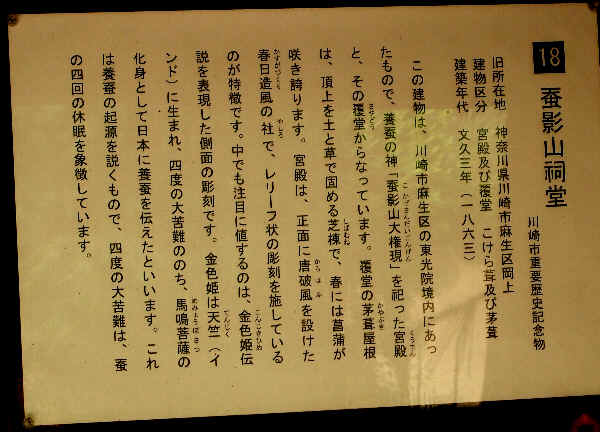 18 蚕影山祠堂
川崎市重要歴史記念物
旧所在地 神奈川県川崎市麻生区岡上
建物区分 宮殿及び覆堂 こけら葺及び茅葺
建築年代 文久三年(一八六三)
この建物は、川崎市麻生区の東光院境内にあっ
たもので、養蚕の神「蚕影山大権現」を祀った宮殿
と、その覆堂からなっています。覆堂の茅葺屋根
は、頂上を土と草で固める芝棟で、春には菖蒲が
咲き誇ります。宮殿は、正面に唐破風を設けた
春日造風の社で、レリーフ状の彫刻を施している
のが特徴です。中でも注目に値するのは、金色姫伝
説を表現した側面の彫刻です。金色姫は天竺(イ
ンド)に生まれ、四度の大苦難ののち、馬鳴菩薩の
化身として日本に養蚕を伝えたといいます。これ
は養蚕の起源を説くもので、四度の大苦難は、蚕
の四回の休眠を象徴しています。